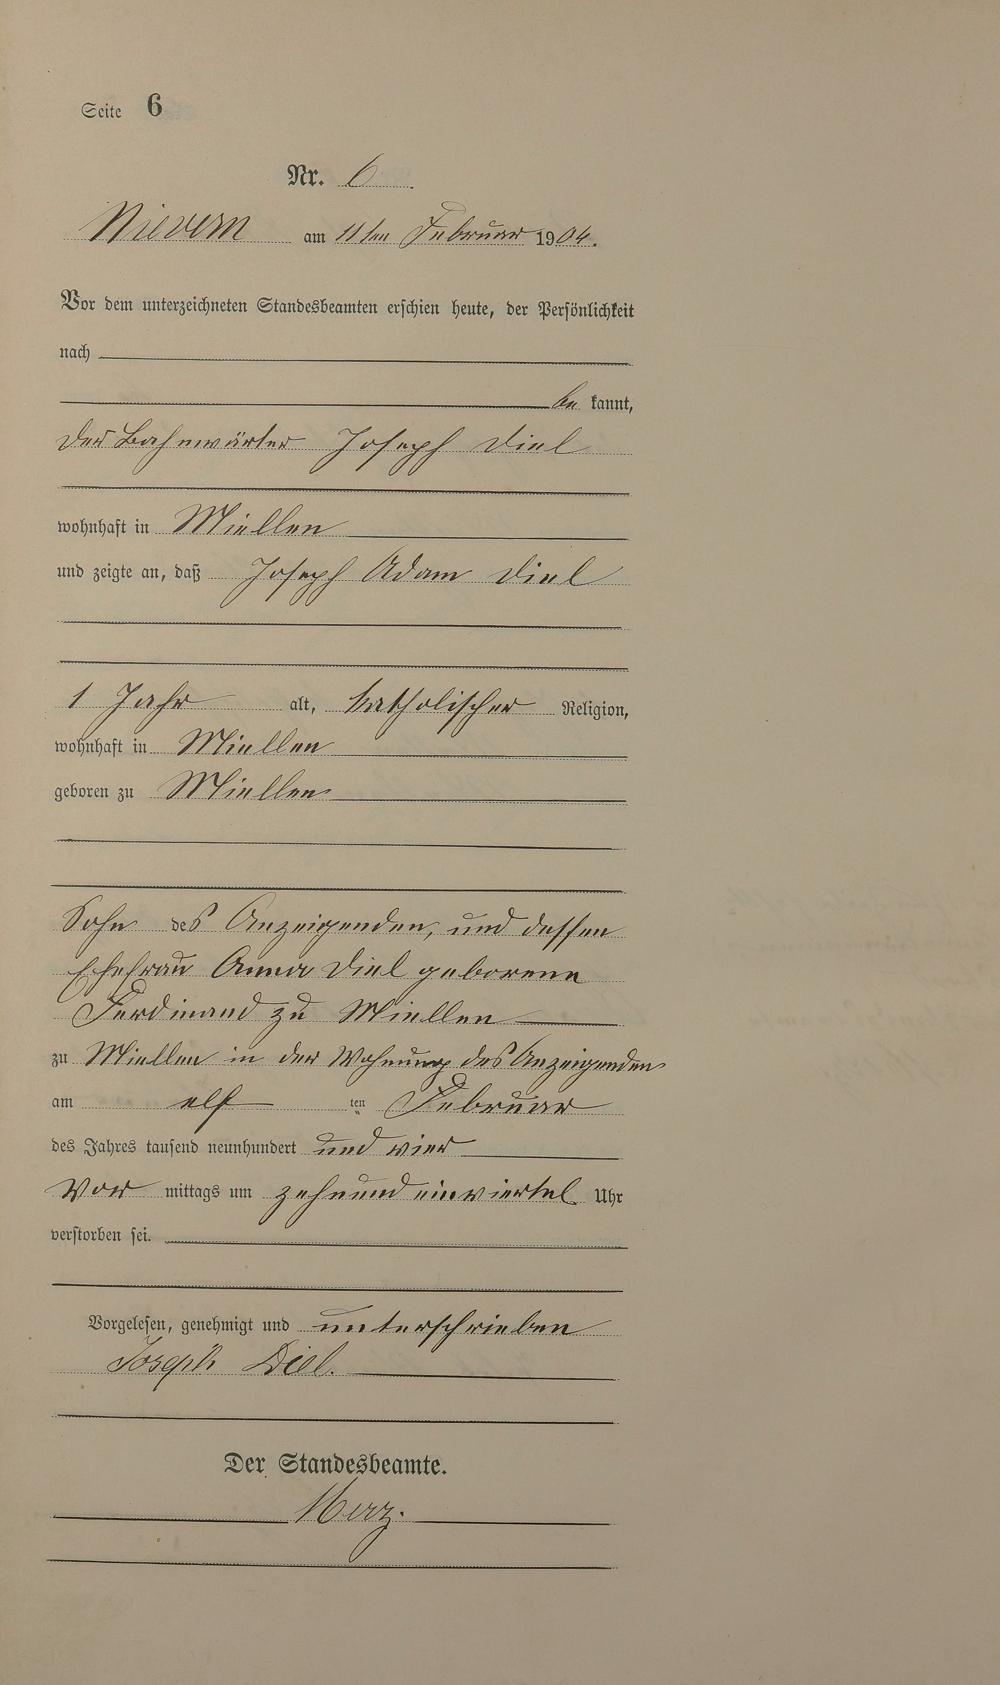 Seite 6
Nr. 6
Nievern am 11ten Februar 1904.
Vor dem unterzeichneten Standesbeamten erschien heute, der Persönlichkeit
nach
be kannt,
der Bahnwärter Joseph Diel
wohnhaft in Miellen
und zeigte an, daß Joseph Adam Diel
1 Jahr alt, katholischer Religion,
wohnhaft in Miellen
geboren zu Miellen
Sohn des Anzeigenden, und dessen
Ehefrau Anna Diel geborene
Ferdinand zu Miellen
zu Miellen in der Wohnung des Anzeigenden
am elf ten Februar
des Jahres tausend neunhundert und vier
Vor mittags um zehnundeinviertel Uhr
verstorben sei.
Vorgelesen, genehmigt und unterschrieben
Joseph Diel.
Der Standesbeamte.
Merz.